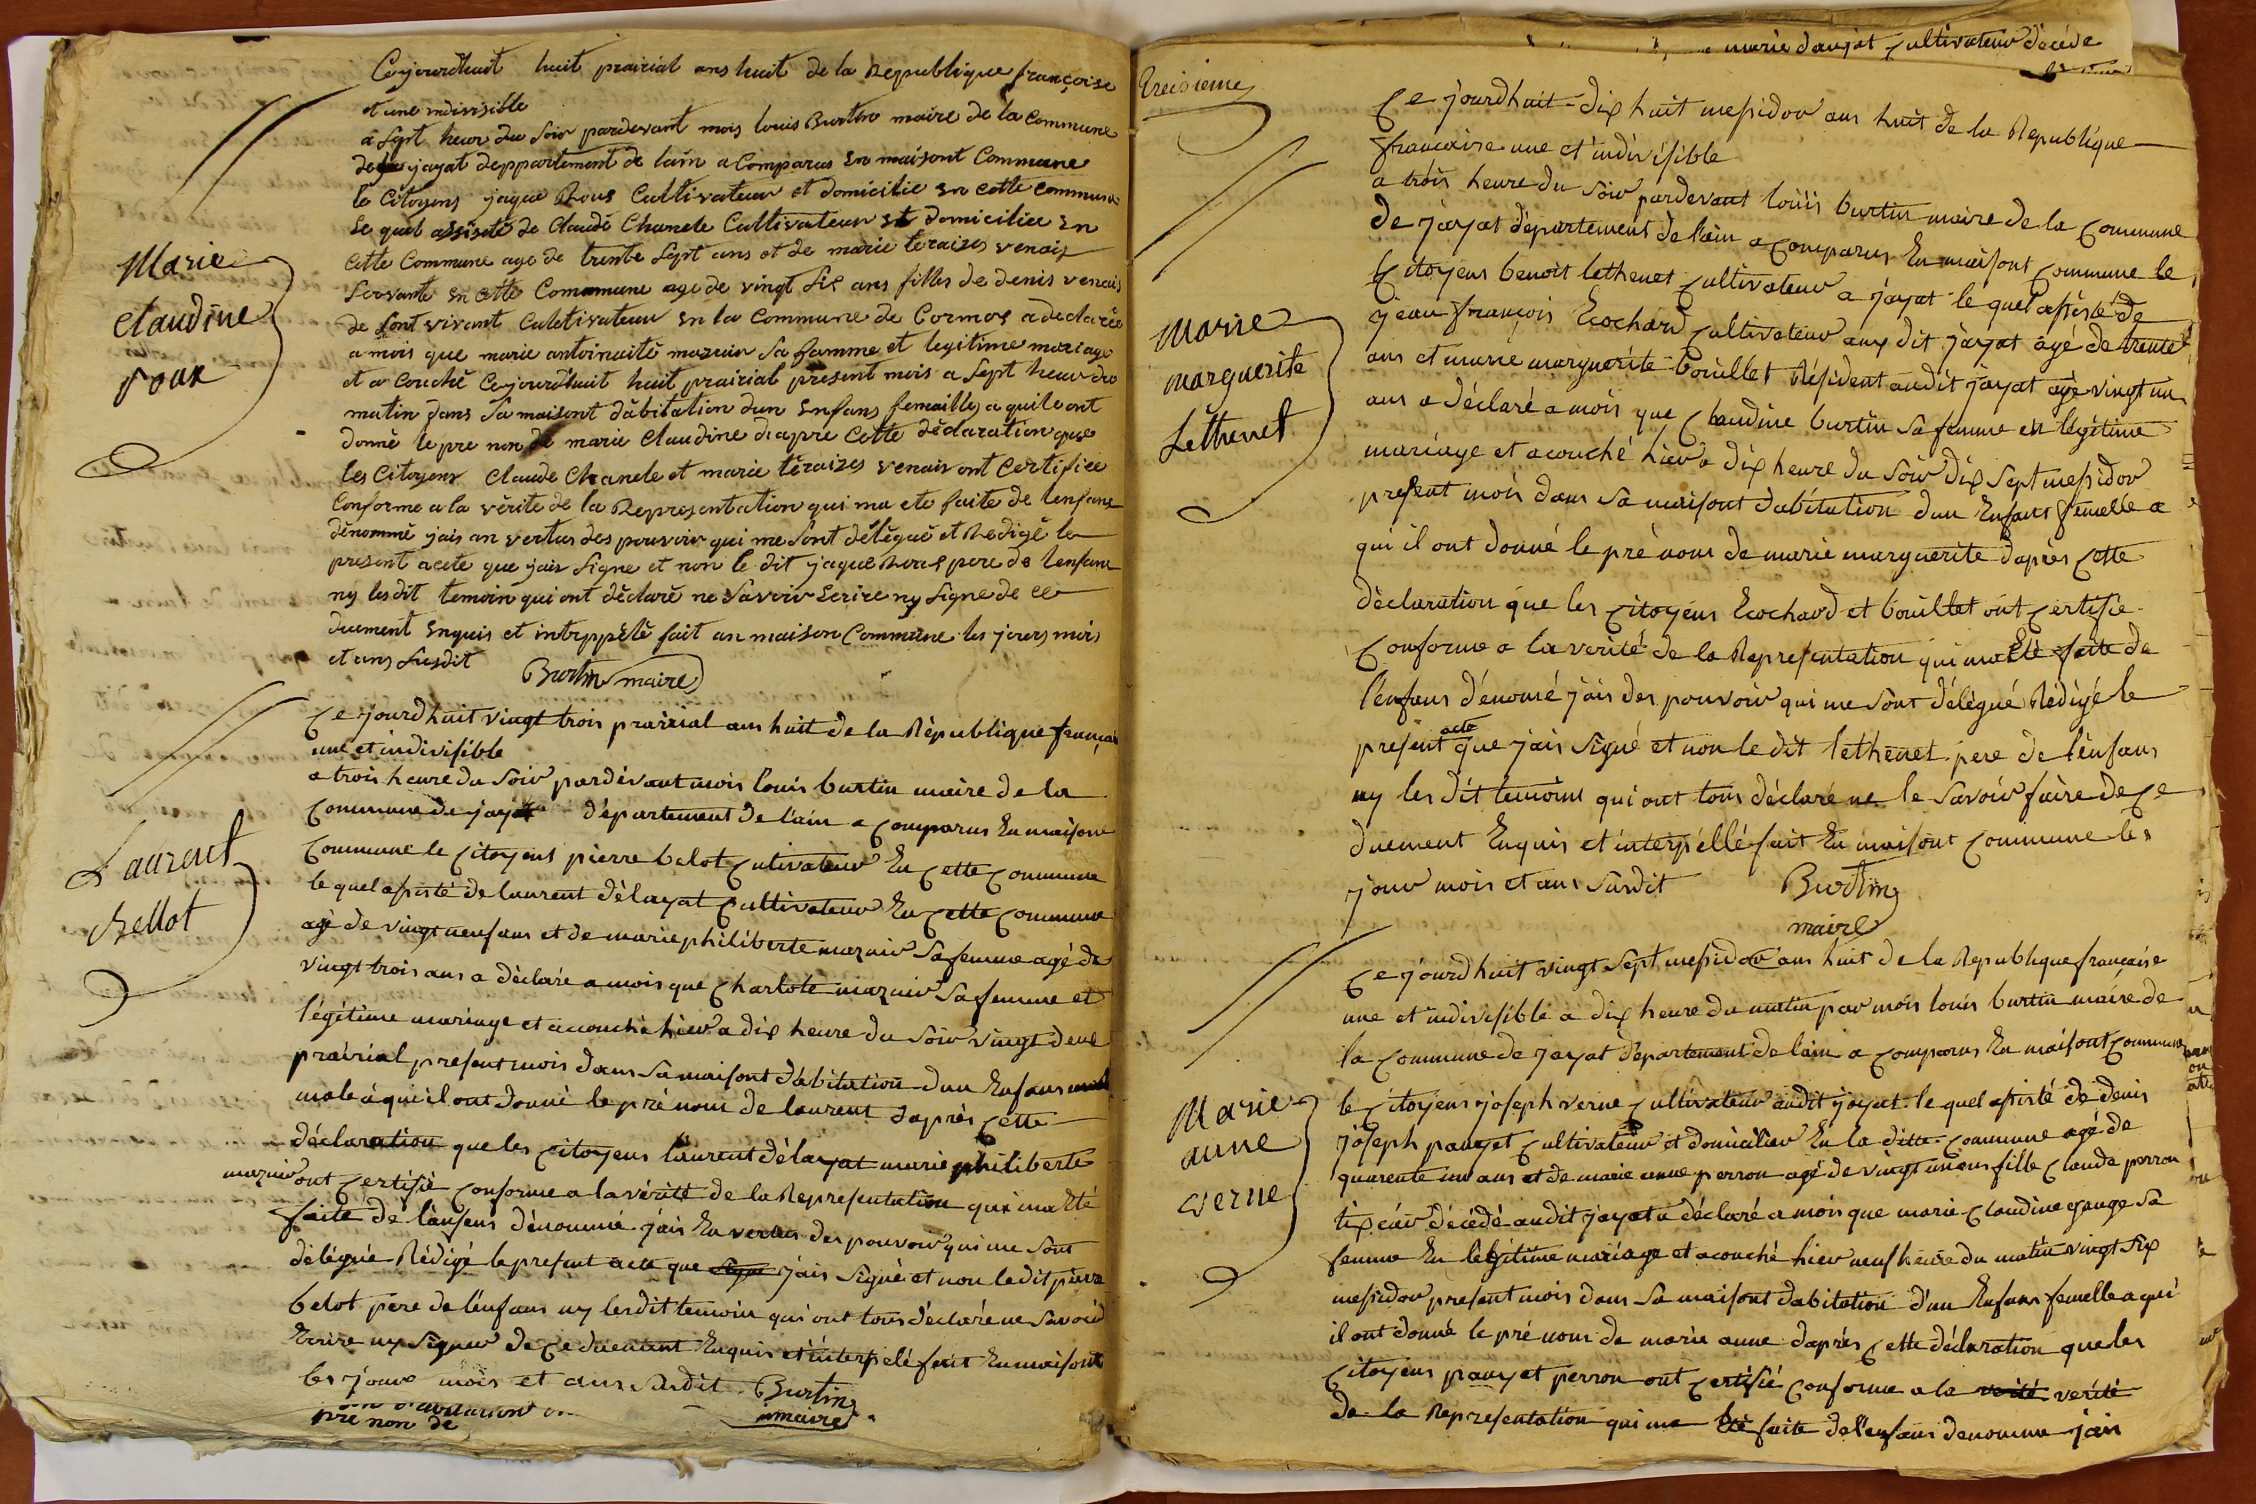 Cejourdhuit huit prairial ans huit de la Republique françoise
et une indivisible
a sept heur du soir pardevant mois louis Burtin maire de la Commune
de jayat deppartement de lain a Comparus En maisont Commune
le Citoyens jaque Roux Cultivateur et domicilie En cette commune
le quel assisté de Claude Chanele Cultivateur et domiciliee En
cette Commune age de trente sept ans et de marie teraizes venais
servante en cette Comamune age de vingt sis ans filles de denis venais
de sont vivant Cultivateur en la Commune de Cormos a declarée
a mois que marie antoinaité mazuir sa famme et legitime mariage
et a Couché Cejourd'huit huit prairial present mois a sept heur du
matin dans sa maisont dàbitation dun Enfans femailles a qui le ont
donné le pre non de marie Claudine diapre Cette déclaration que
les Citoyens Claude Chanele et marie téraizes venair ont Certifiee
Conforme a la vérite de la Representation qui ma ete faite de lenfans
dénommé jais an vertus des pouvoir qui me sont délégué et Redigé le
present acete que jais signe et non le dit jaque Roux pere de lenfans
ny lesdit temoin qui ont déclaré ne savoir Ecrire ny signe de ce
duement Enquis et intreppélé fait an maison Commune les jours mois
et ans susdit Burtin maire
Marie
Claudine
roux
Ce jourdhuit vingt trois prairial ans huit de la République françai
une et indivisible
a trois heure du soir pardevant mois louis burtin maire de la
Commune de jayat département de l'ain a Comparus En maisont
Commune le Citoyens pierre belot Cultivateur En Cette Commune
le quel assisté de laurent délayat Cultivateur En Cette Commune
agé de vingt neuf ans et de marie philiberte mazuir sa femme agé de
vingt trois ans a déclaré a mois que Charlote mazuir sa femme et
légétime mariage et acouché hier a dix heure du soir vingt deux
prairial present mois dans sa maisont d'abitation dun Enfans
male à qui il ont donné le pré nom de laurent d'après Cette
déclaration que les Citoyens laurent délayat marie philiberte
mazuir ont Certifié Conforme a la vérité de la Representation qui ma Eté
faite de l'anfans dénommé jais En vertus des pouvoir qui me sont
délégué Rédigé le present acte que jais signé et non le dit pierre
belot père de l'enfans ny les dit temoin qui ont tous déclaré ne savoir
Ecrire ny signer de Ce duement Enquis et interpelé fait En maisont
les jour mois et ans susdit Burtin
maire
pre non de
Laurent
Bellot
marie danjat Cultivateur décéde
treisieme
Ce jourdhuit dix huit messidor ans huit de la Republique
française une et indivisible
a trois heure du soir pardevant loüis burtin maire de la Commune
de jayat département de l'ain a Comparus En maisont Commune le
Citoyens benoit lethenet Cultivateur a jayat le quel assisté de
jean françois Ecochard Cultivateur aux dit jayat agé de trente
ans et marie marguerite bouillet Résident audit jayat agé vingt un
ans a déclaré a mois que Claudine burtin sa femme en légitime
mariage et acouché hier a dix heure du soir dix sept messidor
present mois dans sa maisont d'abitation dun Enfans femelle a
qui il ont donné le pré nom de marie marguerite d'après Cette
déclaration que les Citoyens Ecochard et bouillet ont Certifié
Conforme a la verité de la Representation qui ma Eté faite de
l'enfans dénomé jais des pouvoir qui me sont délégué Rédigé le
present acte que jais signé et non le dit lethenet pere de l'enfans
ny les dit temoins qui ont tous déclaré ne le savoir faire de Ce
duement Enquis et interpéllé fait En maisont Commune les
jour mois et ans susdit Burtin
maire
Marie
marguerite
Lethenet
Ce jourdhuit vingt sept messidor ans huit de la Republique française
une et indivisible a dix heure du matin par mois louis burtin maire de
la Commune de jayat département de lain a Comparus En maisont Commune
le Citoyens joseph verne Cultivateur audit jayat le quel assisté de denis
joseph panyet Cultivateur et domicilier En la ditte Commune agé de
quarente un ans et de marie anne perron agé de vingt un ans fille Claude perron
tixeür décédé audit jayat a déclaré a mois que marie Claudine gauge sa
femme En légitime mariage et acouché hier neuf heure du matin vingt six
messidor present mois dans sa maisont dabitation d'un Enfans femelle a qui
il ont donné le pré nom de marie anne d'après Cette déclaration que les
Citoyens panyet perron ont Certifié Conforme a la verité verité
de la Representation qui ma Eté faite de l'enfans denomme jais
Marie
anne
verne